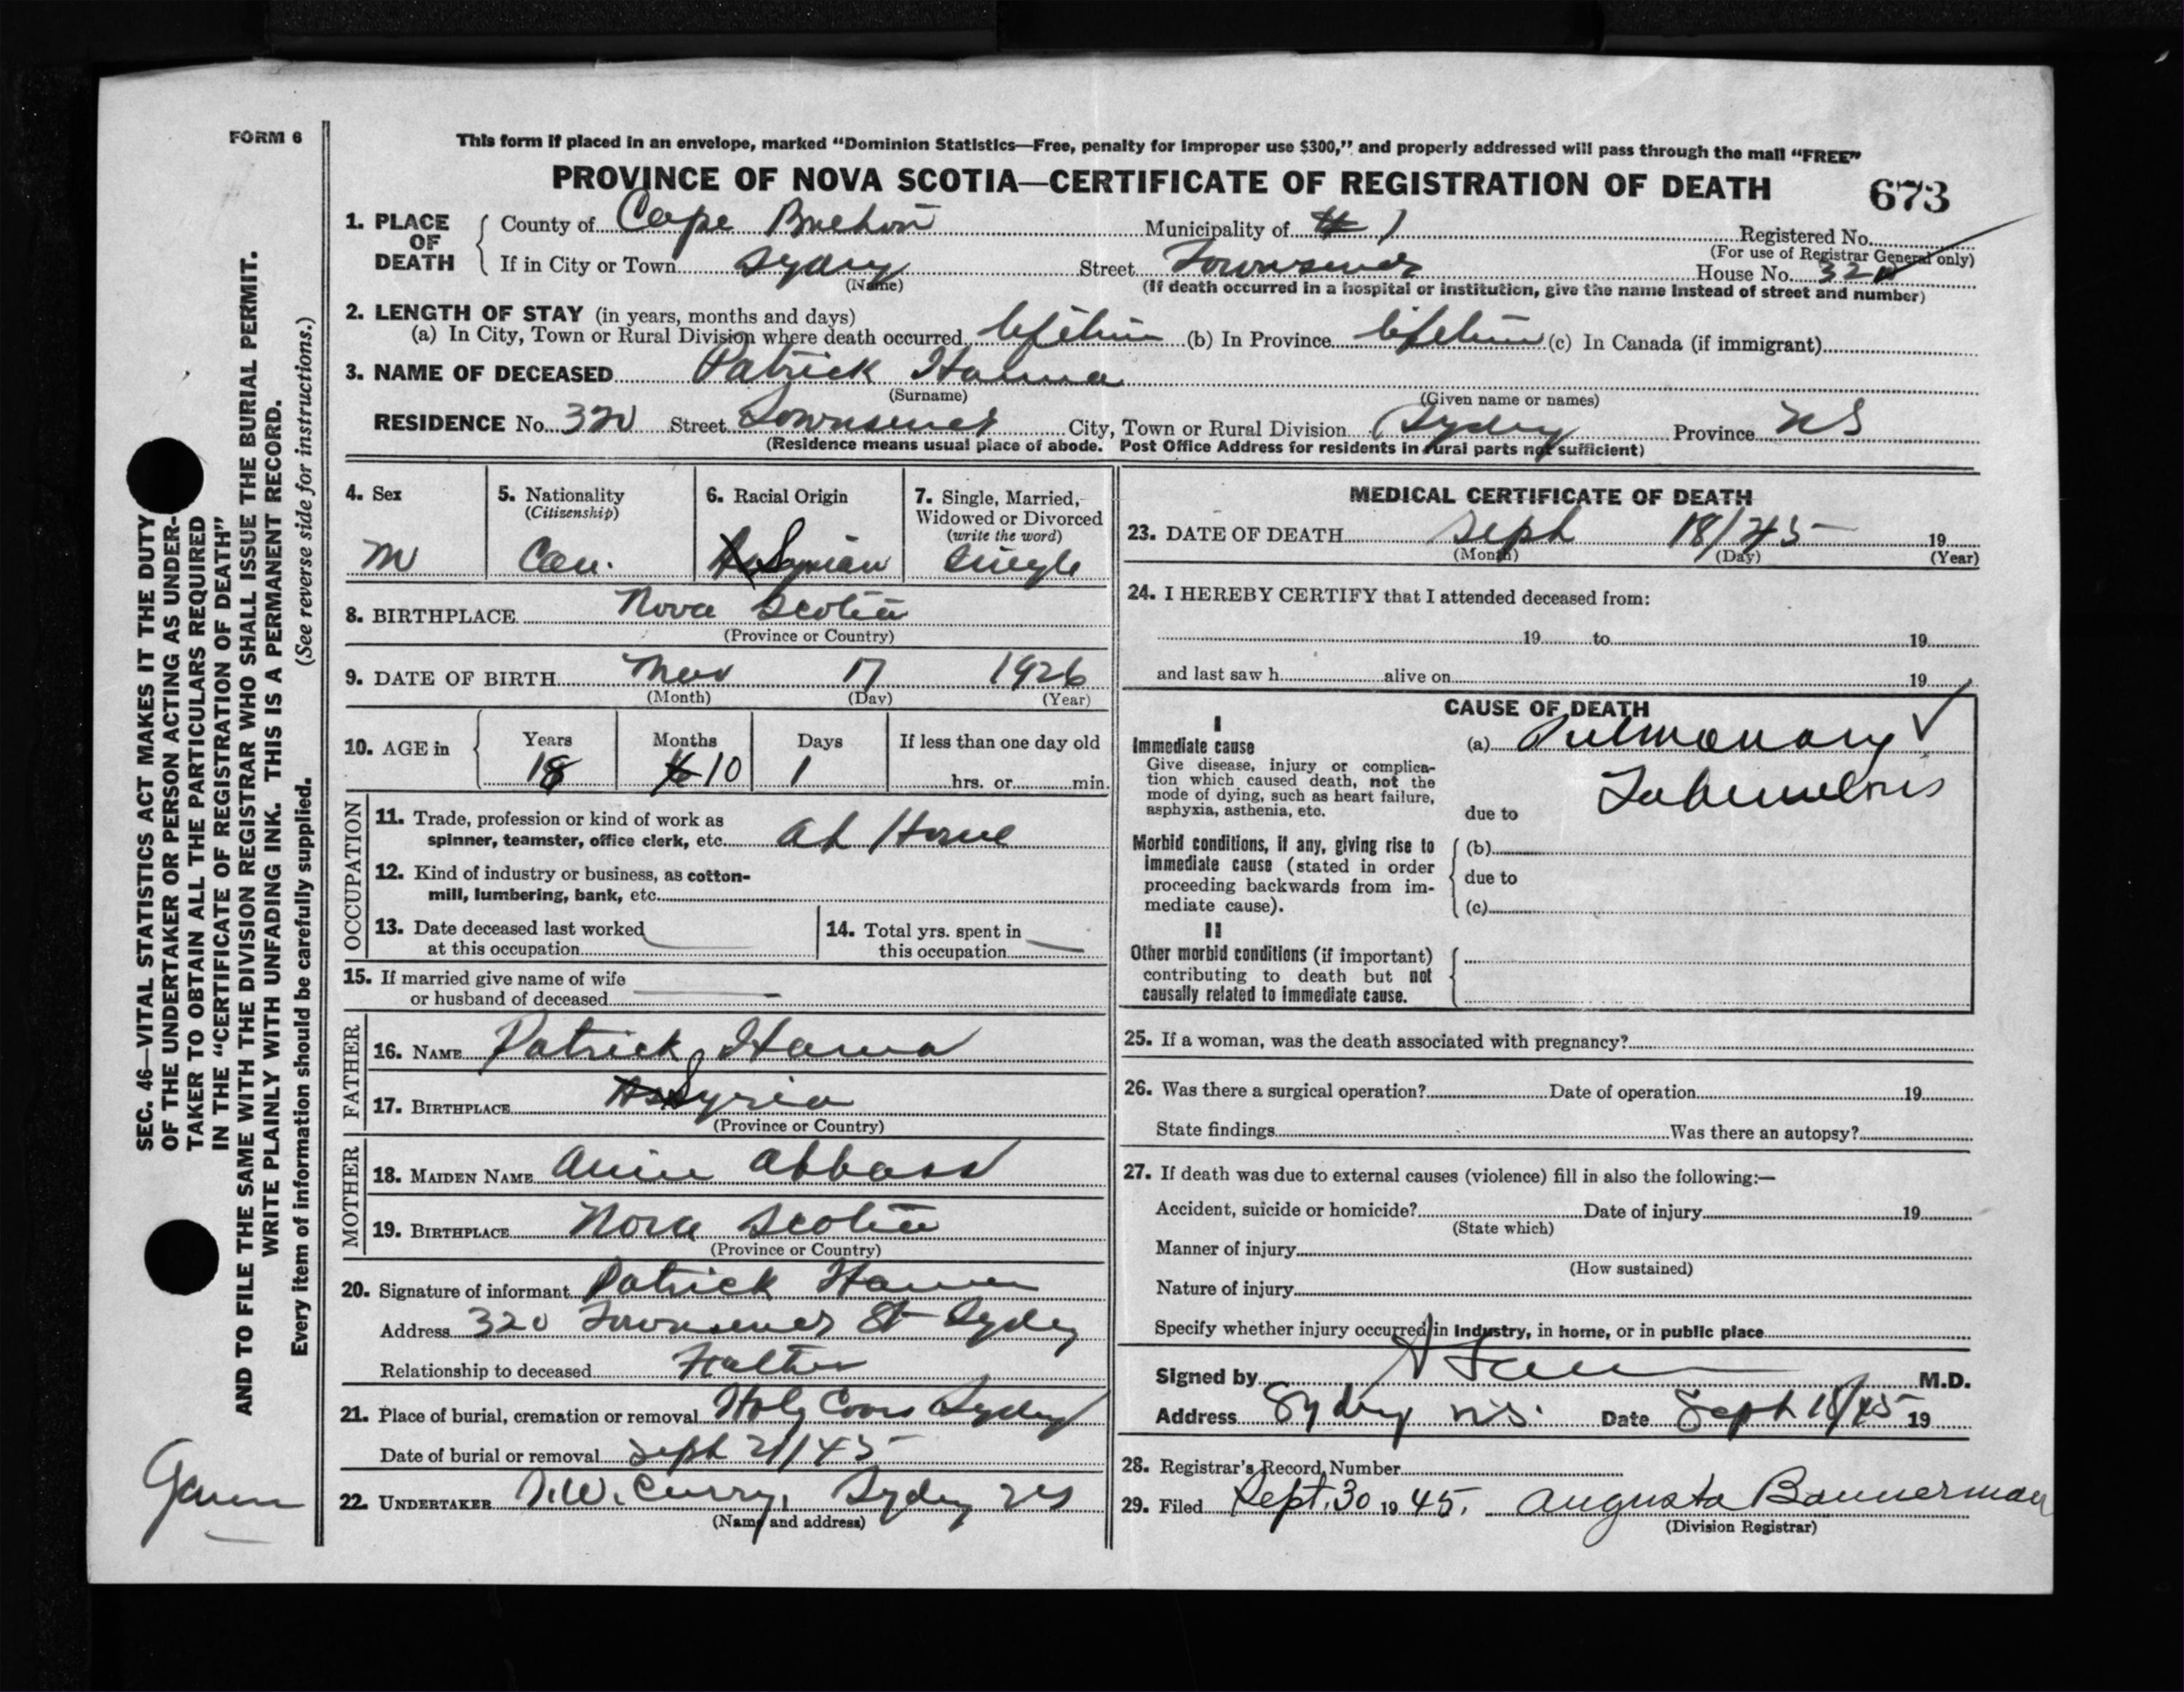 FORM 6
This form if placed in an envelope, marked "Dominion Statistics—Free, penalty for improper use $300," and properly addressed will pass through the mail "FREE"
PROVINCE OF NOVA SCOTIA—CERTIFICATE OF REGISTRATION OF DEATH 673
1. PLACE OF DEATH County of Cape Breton Municipality of # 1 Registered No.
(For use of Registrar General only)
If in City or Town Sydney Street Townsend House No. 320
(Name) (If death occurred in a hospital or institution, give the name instead of street and number)
2. LENGTH OF STAY (in years, months and days)
(a) In City, Town or Rural Division where death occurred lifetime (b) In Province lifetime (c) In Canada (if immigrant)
3. NAME OF DECEASED Patrick Hanna
(Surname) (Given name or names)
RESIDENCE No. 320 Street Townsend City, Town or Rural Division Sydney Province NS
(Residence means usual place of abode. Post Office Address for residents in rural parts not sufficient)
4. Sex M
5. Nationality (Citizenship) Can.
6. Racial Origin Syrian
7. Single, Married, Widowed or Divorced (write the word) Single
8. BIRTHPLACE Nova Scotia
(Province or Country)
9. DATE OF BIRTH Nov 17 1926
(Month) (Day) (Year)
10. AGE in Years 18 Months 10 Days 1 If less than one day old hrs. or min.
OCCUPATION
11. Trade, profession or kind of work as spinner, teamster, office clerk, etc. at Home
12. Kind of industry or business, as cotton-mill, lumbering, bank, etc.
13. Date deceased last worked at this occupation
14. Total yrs. spent in this occupation
15. If married give name of wife or husband of deceased
FATHER
16. NAME Patrick Hanna
17. BIRTHPLACE Syria
(Province or Country)
MOTHER
18. MAIDEN NAME Annie Abbass
19. BIRTHPLACE Nova Scotia
(Province or Country)
20. Signature of informant Patrick Hanna
Address 320 Townsend St Sydney
Relationship to deceased Father
21. Place of burial, cremation or removal Holy Cross Sydney
Date of burial or removal Sept 21/45
22. UNDERTAKER T.W. Curry, Sydney NS
(Name and address)
MEDICAL CERTIFICATE OF DEATH
23. DATE OF DEATH Sept 18/45 19
(Month) (Day) (Year)
24. I HEREBY CERTIFY that I attended deceased from:
19 to 19
and last saw h alive on 19
CAUSE OF DEATH
I
Immediate cause
Give disease, injury or complication which caused death, not the mode of dying, such as heart failure, asphyxia, asthenia, etc.
(a) Pulmonary
Tuberculosis
due to
Morbid conditions, if any, giving rise to immediate cause (stated in order proceeding backwards from immediate cause).
(b)
due to
(c)
II
Other morbid conditions (if important) contributing to death but not causally related to immediate cause.
25. If a woman, was the death associated with pregnancy?
26. Was there a surgical operation? Date of operation 19
State findings Was there an autopsy?
27. If death was due to external causes (violence) fill in also the following:—
Accident, suicide or homicide? Date of injury 19
(State which)
Manner of injury
(How sustained)
Nature of injury
Specify whether injury occurred in industry, in home, or in public place
Signed by M.D.
Address Sydney N.S. Date Sept 18/45 19
28. Registrar's Record Number
29. Filed Sept. 30 19 45. Augusta Bannerman
(Division Registrar)
SEC. 46—VITAL STATISTICS ACT MAKES IT THE DUTY
OF THE UNDERTAKER OR PERSON ACTING AS UNDER-
TAKER TO OBTAIN ALL THE PARTICULARS REQUIRED
IN THE "CERTIFICATE OF REGISTRATION OF DEATH"
AND TO FILE THE SAME WITH THE DIVISION REGISTRAR WHO SHALL ISSUE THE BURIAL PERMIT.
WRITE PLAINLY WITH UNFADING INK. THIS IS A PERMANENT RECORD.
Every item of information should be carefully supplied. (See reverse side for instructions.)